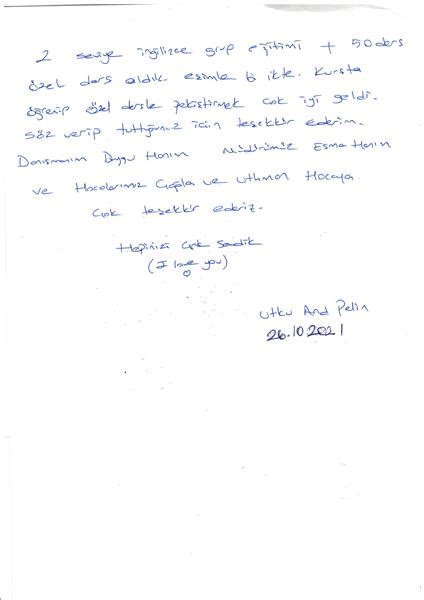 2 seviye ingilizce grup eğitimi + 50 ders
özel ders aldık eşimle birlikte. Kursta
öğrenip özel dersle pekiştirmek çok iyi geldi.
Söz verip tuttuğunuz için teşekkür ederim.
Danışmanım Duygu Hanım Müdürümüz Esma Hanım
ve Hocalarımız Çağla ve Uthman Hocaya
çok teşekkür ederiz.
Hepinizi çok sevdik
(I love you)
Utku And Pelin
26.10.2021